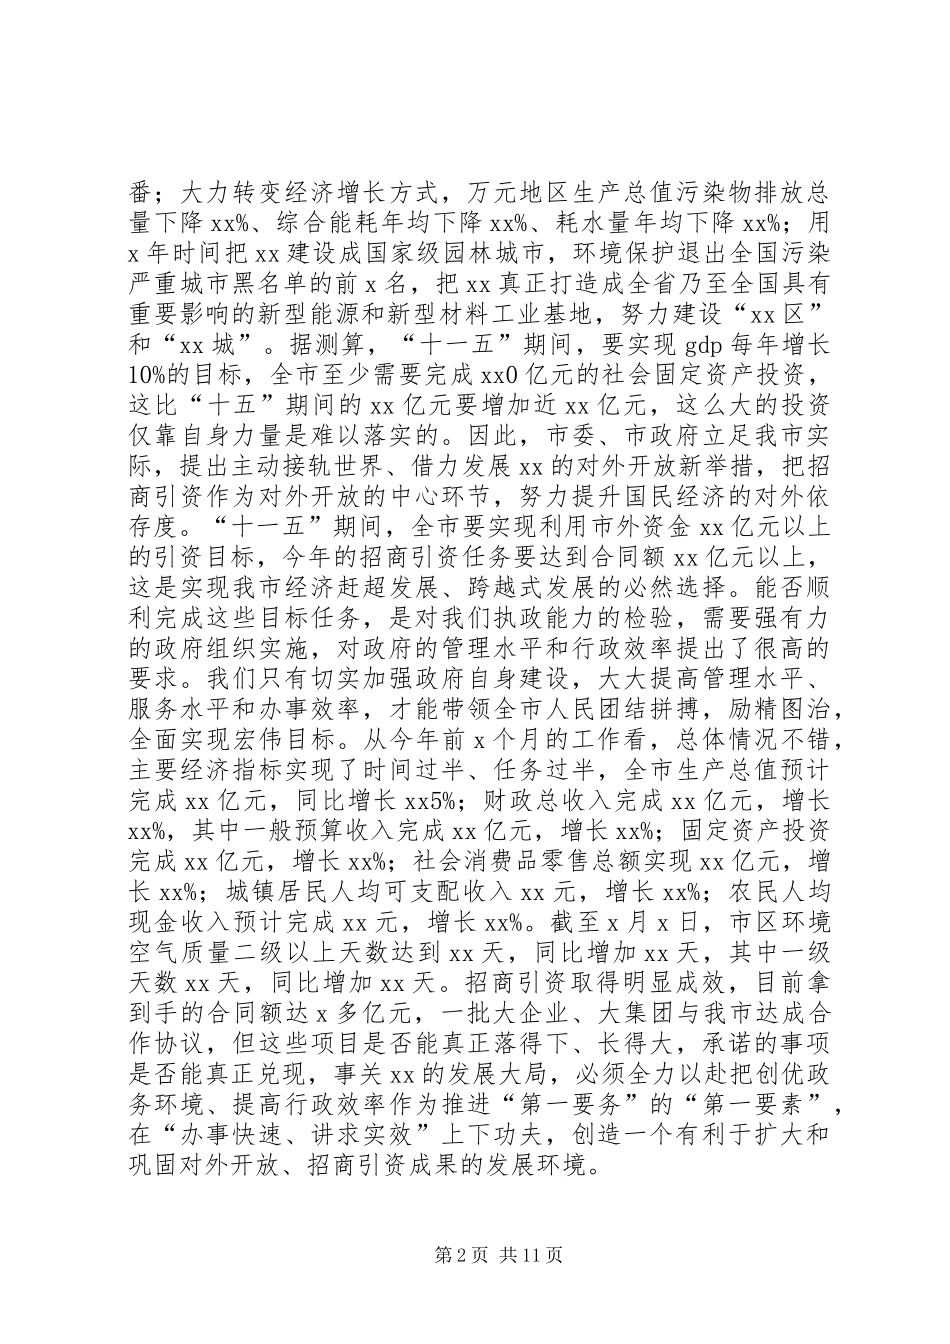 番；大力转变经济增长方式，万元地区生产总值污染物排放总
量下降 xx%、综合能耗年均下降 xx%、耗水量年均下降 xx%；用
x 年时间把 xx 建设成国家级园林城市，环境保护退出全国污染
严重城市黑名单的前 x 名，把 xx 真正打造成全省乃至全国具有
重要影响的新型能源和新型材料工业基地，努力建设“xx 区”
和“xx 城”。据测算，“十一五”期间，要实现 gdp 每年增长
10%的目标，全市至少需要完成 xx0 亿元的社会固定资产投资，
这比“十五”期间的 xx 亿元要增加近 xx 亿元，这么大的投资
仅靠自身力量是难以落实的。因此，市委、市政府立足我市实
际，提出主动接轨世界、借力发展 xx 的对外开放新举措，把招
商引资作为对外开放的中心环节，努力提升国民经济的对外依
存度。“十一五”期间，全市要实现利用市外资金 xx 亿元以上
的引资目标，今年的招商引资任务要达到合同额 xx 亿元以上，
这是实现我市经济赶超发展、跨越式发展的必然选择。能否顺
利完成这些目标任务，是对我们执政能力的检验，需要强有力
的政府组织实施，对政府的管理水平和行政效率提出了很高的
要求。我们只有切实加强政府自身建设，大大提高管理水平、
服务水平和办事效率，才能带领全市人民团结拼搏，励精图治，
全面实现宏伟目标。从今年前 x 个月的工作看，总体情况不错，
主要经济指标实现了时间过半、任务过半，全市生产总值预计
完成 xx 亿元，同比增长 xx5%；财政总收入完成 xx 亿元，增长
xx%，其中一般预算收入完成 xx 亿元，增长 xx%；固定资产投资
完成 xx 亿元，增长 xx%；社会消费品零售总额实现 xx 亿元，增
长 xx%；城镇居民人均可支配收入 xx 元，增长 xx%；农民人均
现金收入预计完成 xx 元，增长 xx%。截至 x 月 x 日，市区环境
空气质量二级以上天数达到 xx 天，同比增加 xx 天，其中一级
天数 xx 天，同比增加 xx 天。招商引资取得明显成效，目前拿
到手的合同额达 x 多亿元，一批大企业、大集团与我市达成合
作协议，但这些项目是否能真正落得下、长得大，承诺的事项
是否能真正兑现，事关 xx 的发展大局，必须全力以赴把创优政
务环境、提高行政效率作为推进“第一要务”的“第一要素”，
在“办事快速、讲求实效”上下功夫，创造一个有利于扩大和
巩固对外开放、招商引资成果的发展环境。
第 2 页 共 11 页